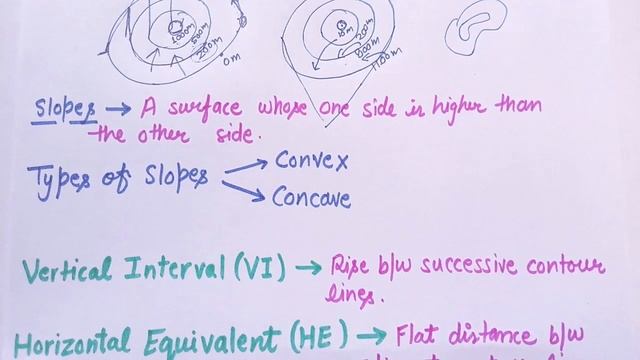 1000m
500m
200m
0m
10m
200m
800m
1100m
Slopes → A surface whose one side is higher than
the other side.
Types of Slopes
Convex
Concave
Vertical Interval (VI) → Rise b/w successive contour
lines.
Horizontal Equivalent (HE) → Flat distance b/w